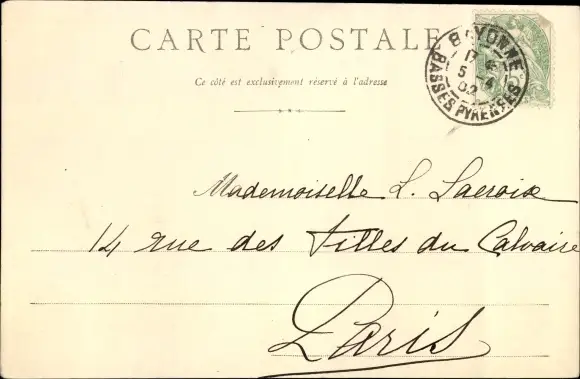 CARTE POSTALE
Ce côté est exclusivement réservé à l'adresse
BAYONNE
BASSES PYRENEES
5 -4
02
Mademoiselle L. Lacroix
14 rue des Filles du Calvaire
Paris